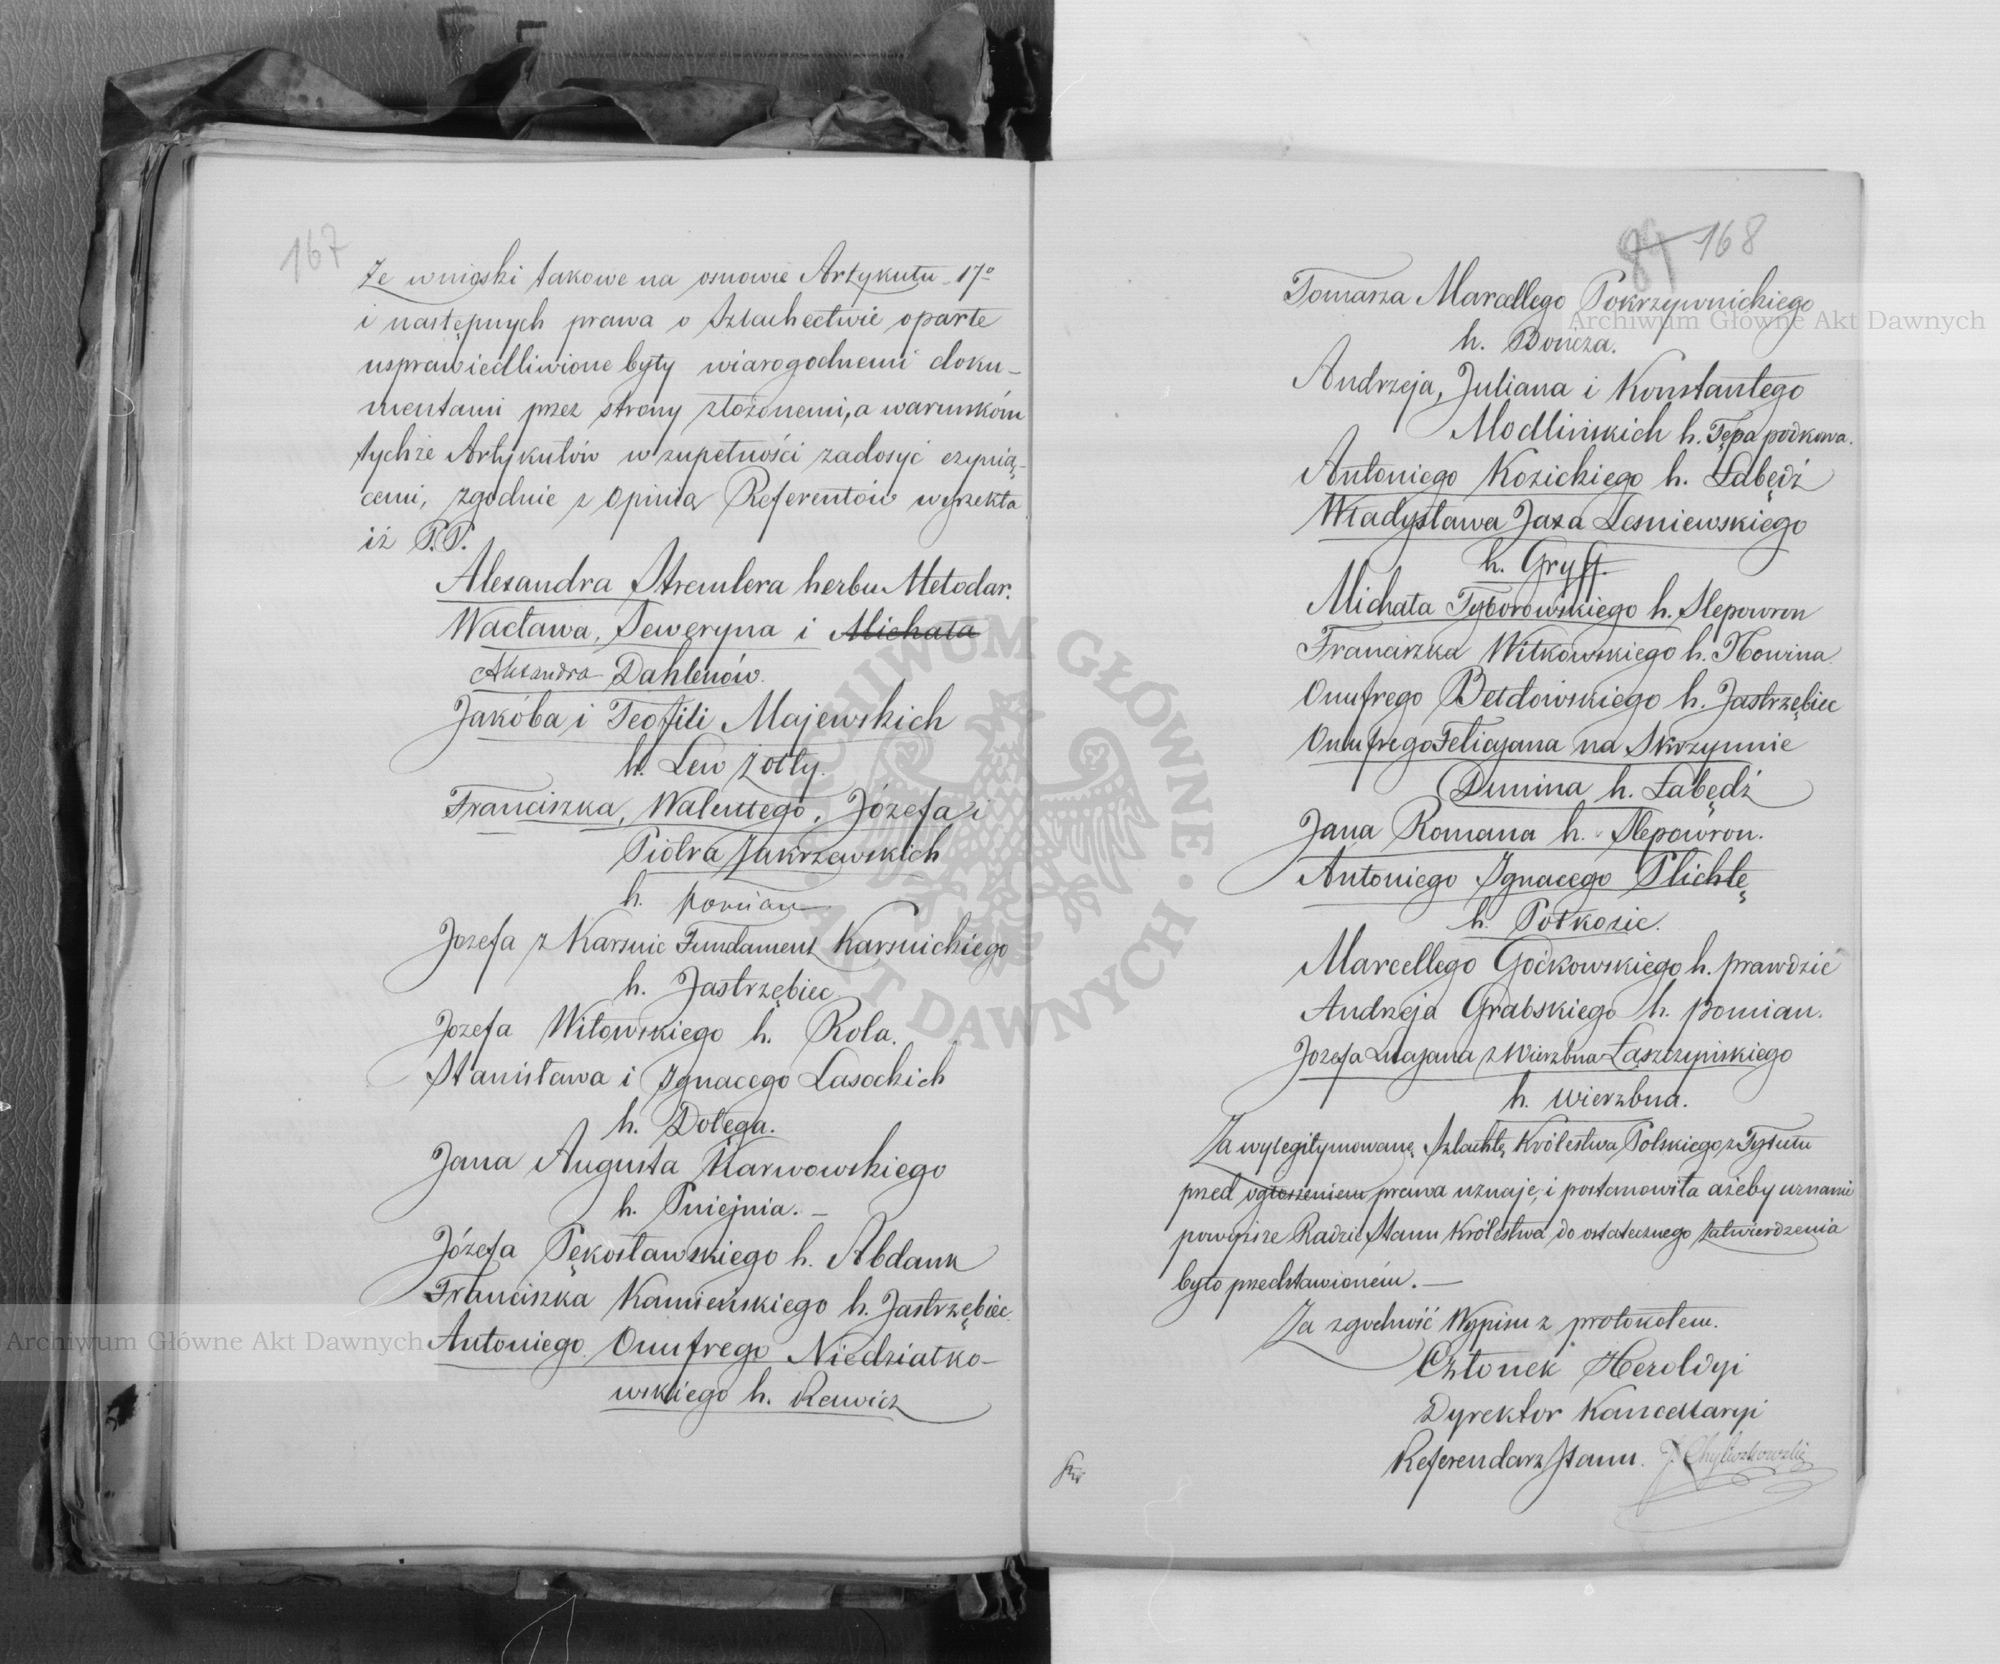 167
że wnioski takowe na osnowie Artykułu 17º
i następnych prawa o Szlachectwie oparte
usprawiedliwione były wiarogodnemi doku-
mentami przez strony złożonemi, a warunkóm
tychże Artykułów w zupełności zadosyć czynią-
cemi, zgodnie z Opinią Referentów wyrzekła
iż P.P.
Alexandra Stremlera herbu Metodar.
Wacława, Seweryna i Michała
Alexandra Dahlenów.
Jakóba i Teofili Majewskich
h. Lew żółty.
Franciszka, Walentego, Józefa i
Piotra Zakrzewskich
h. pomian
Józefa z Karsnic Fundament Karsnickiego
h. Jastrzębiec
Józefa Witowskiego h. Rola.
Stanisława i Ignacego Lasockich
h. Dołęga.
Jana Augusta Karwowskiego
h. Pniejnia. –
Józefa Pękosławskiego h. Abdank
Franciszka Kamieńskiego h. Jastrzębiec.
Antoniego Onufrego Niedziałko-
wskiego h. Rawicz
84 168
Tomasza Marcellego Pokrzywnickiego
h. Bończa.
Andrzeja, Juliana i Konstantego
Modlińskich h. Tępa podkowa.
Antoniego Kozickiego h. Łabędź
Władysława Jaxa Lesniewskiego
h. Gryff.
Michała Tyborowskiego h. Slepowron
Franciszka Witkowskiego h. Nowina
Onufrego Bełdowskiego h. Jastrzębiec
Onufrego Felicjana na Skrzynnie
Dunina h. Łabędź
Jana Romana h. Slepowron.
Antoniego Ignacego Plichtę
h. Półkozic.
Marcellego Goćkowskiego h. prawdzic
Andrzeja Grabskiego h. pomian.
Józefa Łucjana z Wierzbna Łaszczyńskiego
h. Wierzbna.
Za wylegitymowaną Szlachtę Królestwa Polskiego, z Tytułu
przed ogłoszeniem prawa uznaje, i postanowiła ażeby uznanie
powyższe Radzie Stanu Królestwa do ostatecznego zatwierdzenia
było przedstawioném. —
Za zgodność Wypisu z protokołem.
Członek Heroldyi
Dyrektor Kancellaryi
Referendarz Stanu. J. Chyliczkowski
Archiwum Główne Akt Dawnych
Archiwum Główne Akt Dawnych
ARCHIWUM GŁÓWNE
AKT DAWNYCH